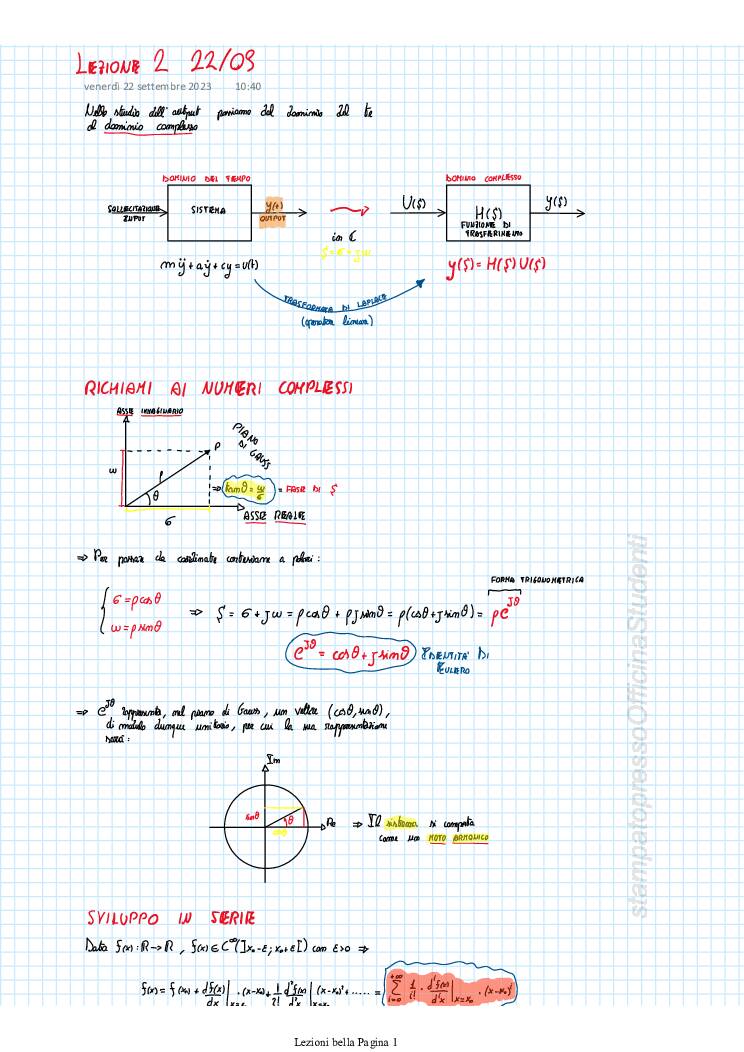 LEZIONE 2 22/09
venerdì 22 settembre 2023 10:40
Nello studio dell'output passiamo dal dominio del te
al dominio complesso
DOMINIO DEL TEMPO
DOMINIO COMPLESSO
SOLLECITAZIONE
INPUT
SISTEMA
y(t)
OUTPUT
in ℂ
s = σ + jω
U(s)
H(s)
FUNZIONE DI
TRASFERIMENTO
y(s)
mÿ + aẏ + cy = u(t)
y(s) = H(s) U(s)
TRASFORMATA DI LAPLACE
(operatore lineare)
RICHIAMI AI NUMERI COMPLESSI
ASSE IMMAGINARIO
PIANO
DI GAUSS
P
ω
ρ
θ
⇒ tanθ = ω/σ = FASE DI s
σ
ASSE REALE
⇒ Per passare da coordinate cartesiane a polari:
FORMA TRIGONOMETRICA
{ σ = ρcosθ
ω = ρsinθ
⇒ s = σ + jω = ρcosθ + ρjsinθ = ρ(cosθ + jsinθ) = ρe^jθ
e^jθ = cosθ + jsinθ IDENTITA' DI
EULERO
⇒ e^jθ rappresenta, nel piano di Gauss, un vettore (cosθ, sinθ),
di modulo dunque unitario, per cui la sua rappresentazione
sarà:
Im
sinθ
θ
cosθ
Re
⇒ Il sistema si comporta
come un MOTO ARMONICO
SVILUPPO IN SERIE
Data f(x): ℝ→ℝ, f(x) ∈ C^∞(]x₀-ε; x₀+ε[) con ε>0 ⇒
f(x) = f(x₀) + df(x)/dx |x=x₀ · (x-x₀) + 1/2! d²f(x)/d²x |x=x₀ (x-x₀)² + ..... = ∑ i=0 +∞ 1/i! · dⁱf(x)/dⁱx |x=x₀ · (x-x₀)ⁱ
stampatopressoOfficinaStudenti
Lezioni bella Pagina 1